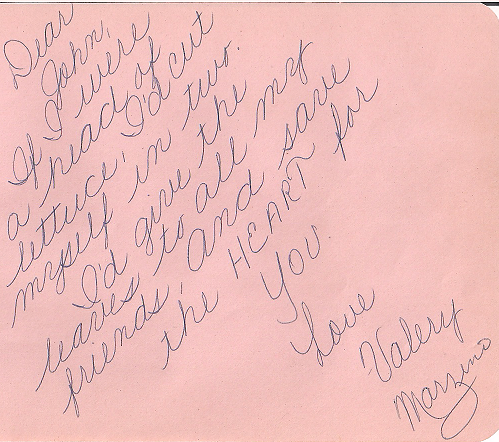 Dear
John,
If I were
a head of
lettuce, I'd cut
myself in two.
I'd give the
leaves to all my
friends, and save
the HEART for
YOU
Love
Valery
Marzino